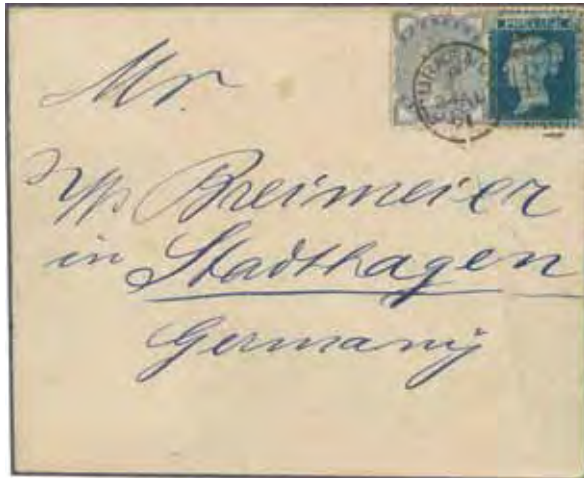 Mr.
Breimeier
in Stadthagen
Germany